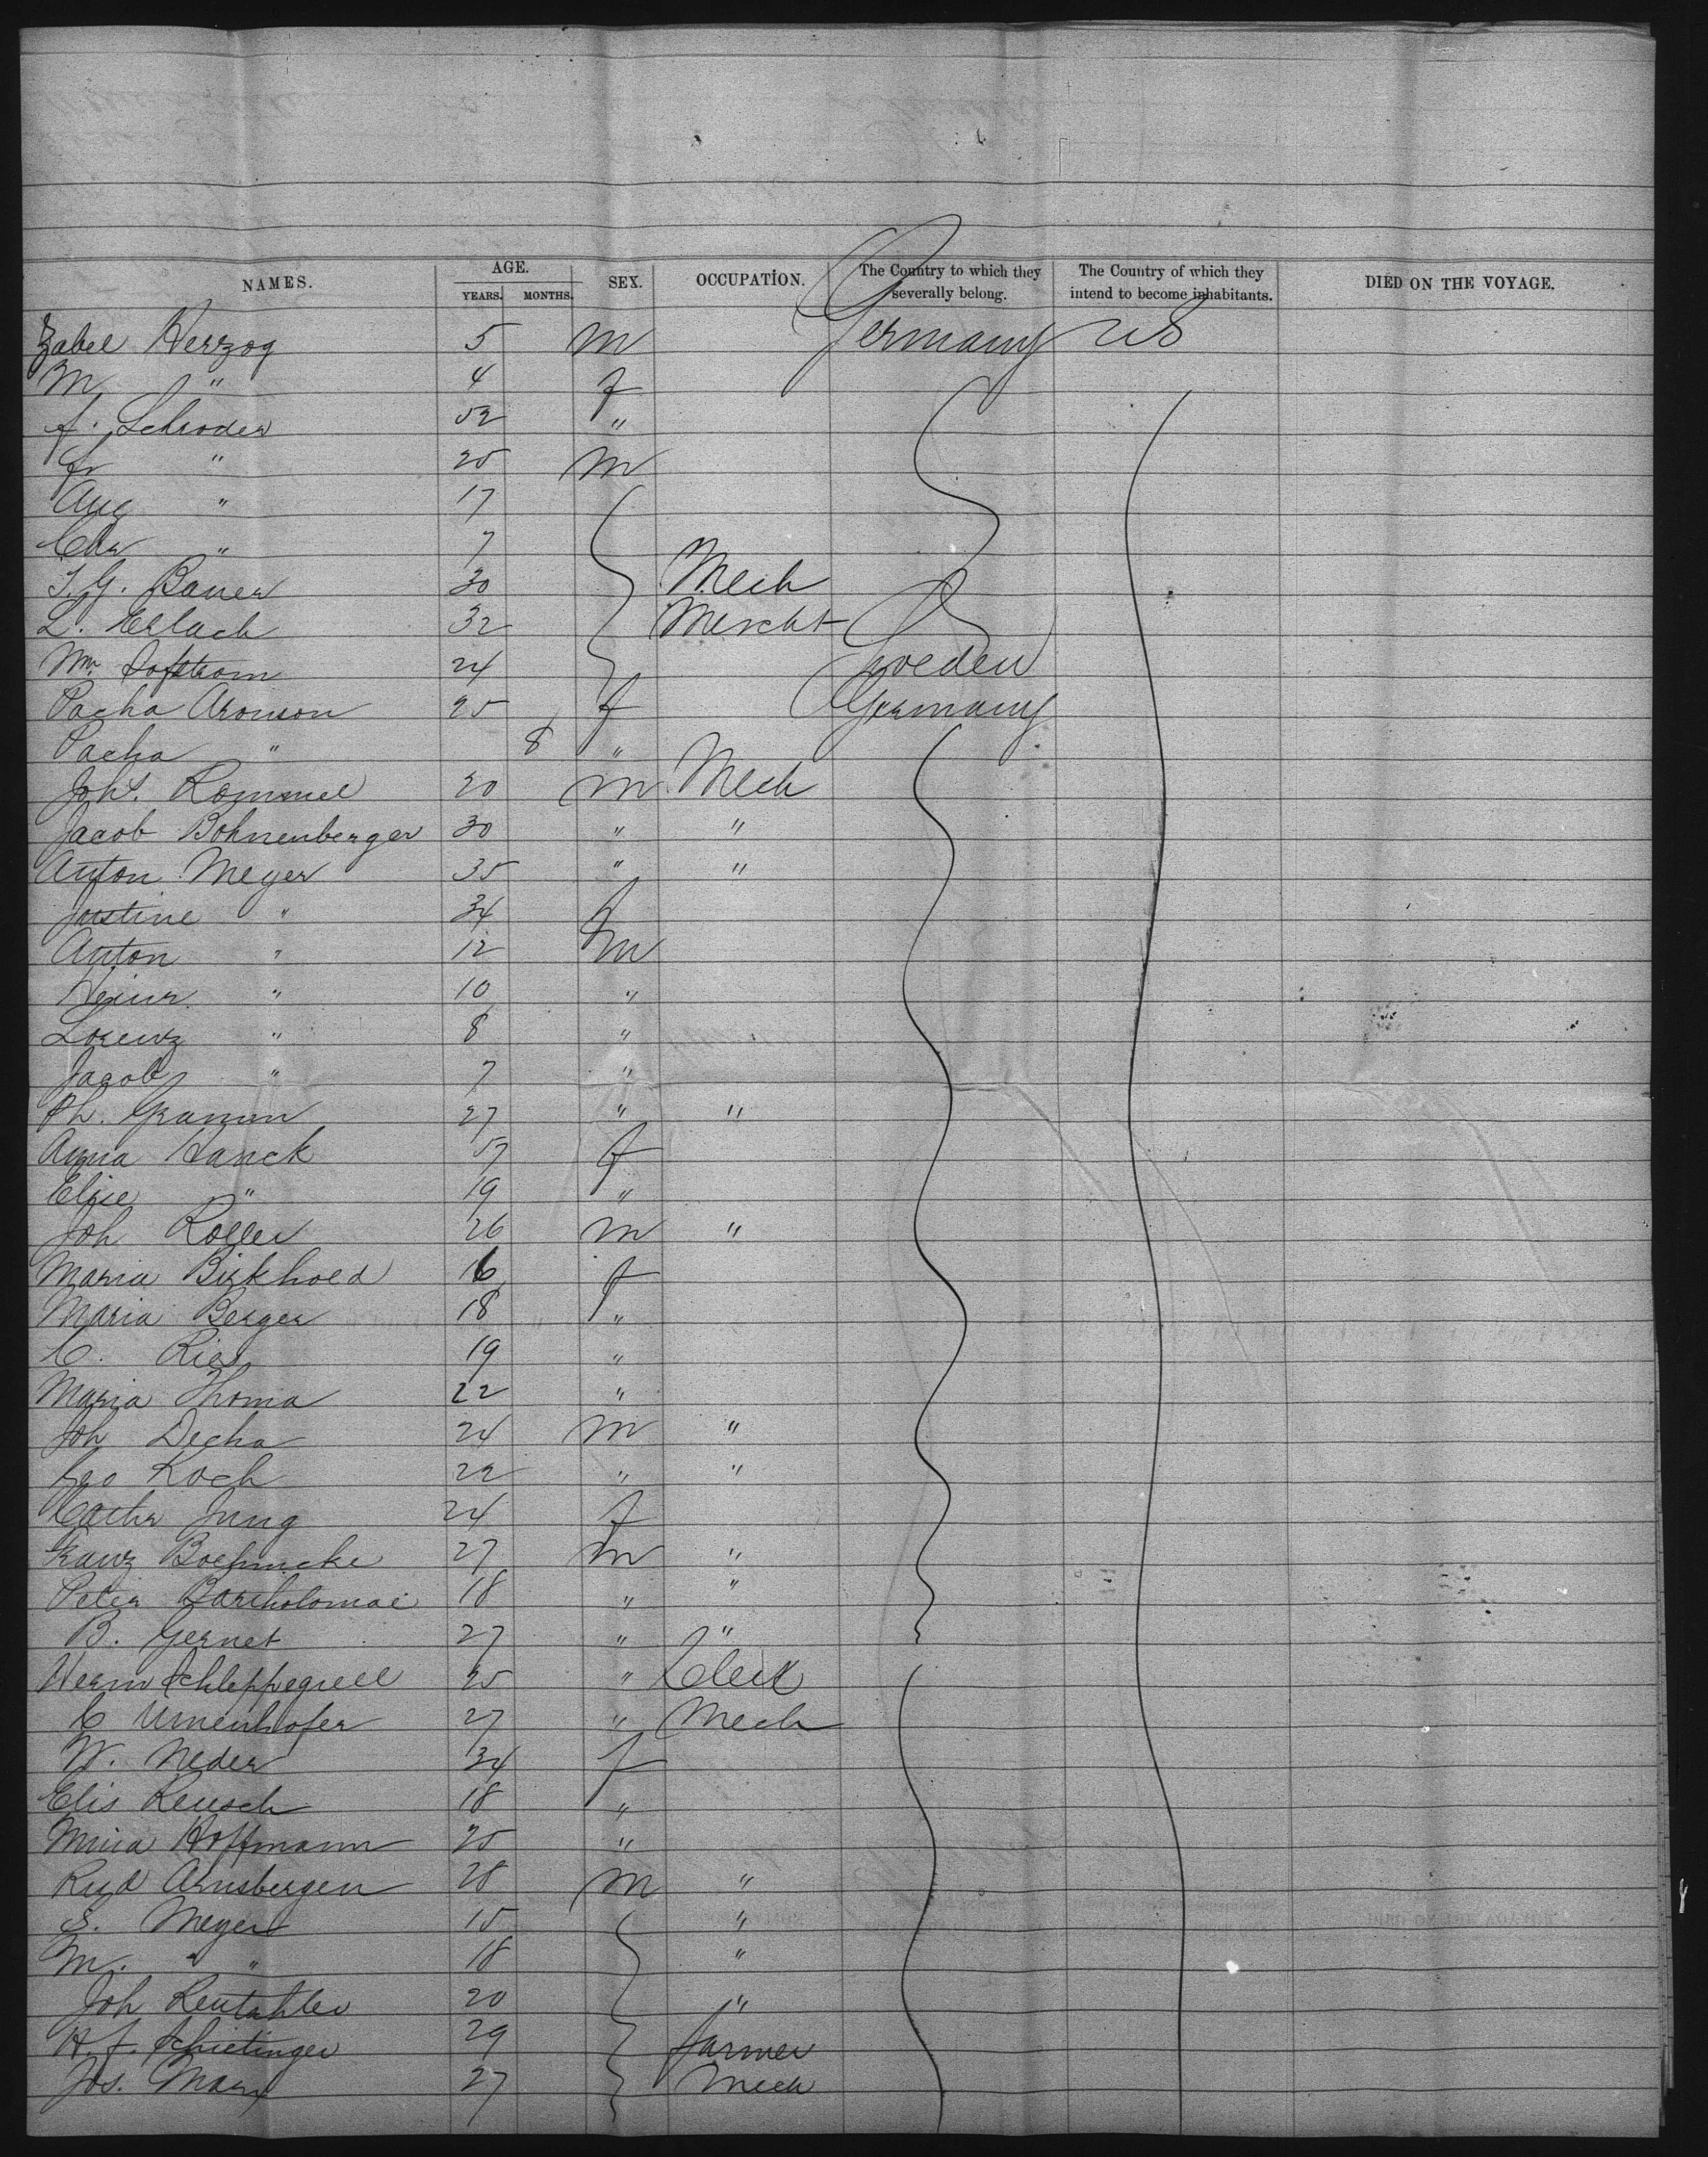 NAMES. AGE. SEX. OCCUPATION. The Country to which they severally belong. The Country of which they intend to become inhabitants. DIED ON THE VOYAGE.
YEARS. MONTHS.
Zabel Herzog 5 m Germany US
M " 4 f
A. Schroder 52 "
Fr " 25 m
Aug " 17
Chr " 7
J. G. Bauer 30 Mech
L. Erlach 32 Mercht
Wm. Lofstrom 24 Sweden
Pacha Aronson 25 f Germany
Pacha " 8 "
Joh. Rommel 20 m Mech
Jacob Bohnenberger 30 " "
Anton Meyer 35 " "
Justine " 34 f
Anton " 12 m
Heinr " 10 "
Lorenz " 8 "
Jacob " 7 "
Ph. Gramm 27 " "
Anna Hanck 57 f
Elise " 19 "
Joh Roller 26 m "
Maria Birkhold 16 f
Maria Berger 18 "
C. Ries 19 "
Maria Thoma 22 "
Joh Decha 24 m "
Geo Koch 22 " "
Cathr Jung 24 f
Franz Boehmcke 27 m "
Peter Bartholomae 18 " "
B. Gernet 27 " "
Herm Schleppegrell 25 " Clerk
C Urnenhofer 27 " Mech
W. Neder 34 f
Elis Reusch 18 "
Mina Hoffmann 25 "
Rud Arnsbergen 28 m "
S. Meyer 15 "
M. " " 18 "
Joh Reutahler 20 "
H. F. Schietinger 29 farmer
Jos. Marx 27 Mech